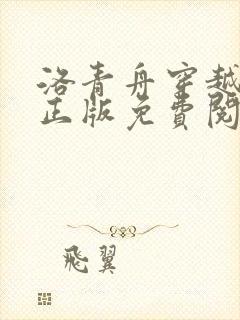 洛青舟穿越
正版免費閱
飛翼